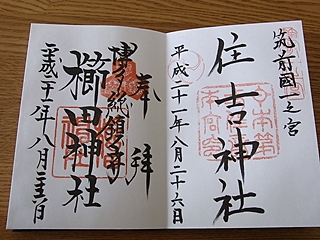 筑前國一之宮
住吉神社
平成二十一年八月二十六日
奉拝
博多総鎮守
櫛田神社
平成二十一年八月